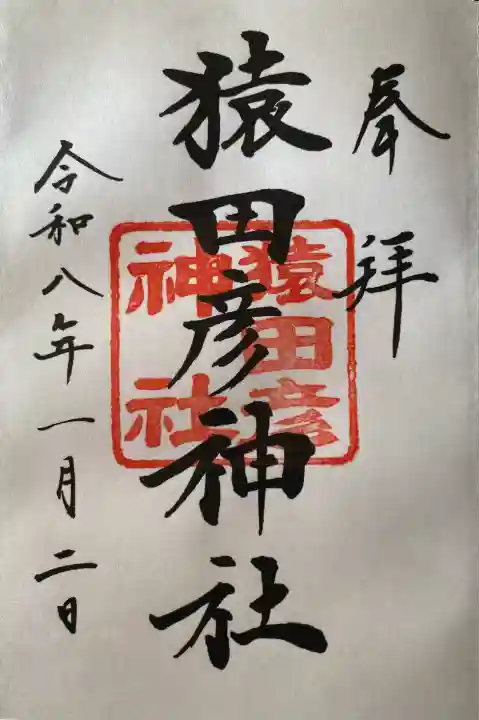 奉拝
猿田彦神社
猿田彦
神社
令和八年一月二日